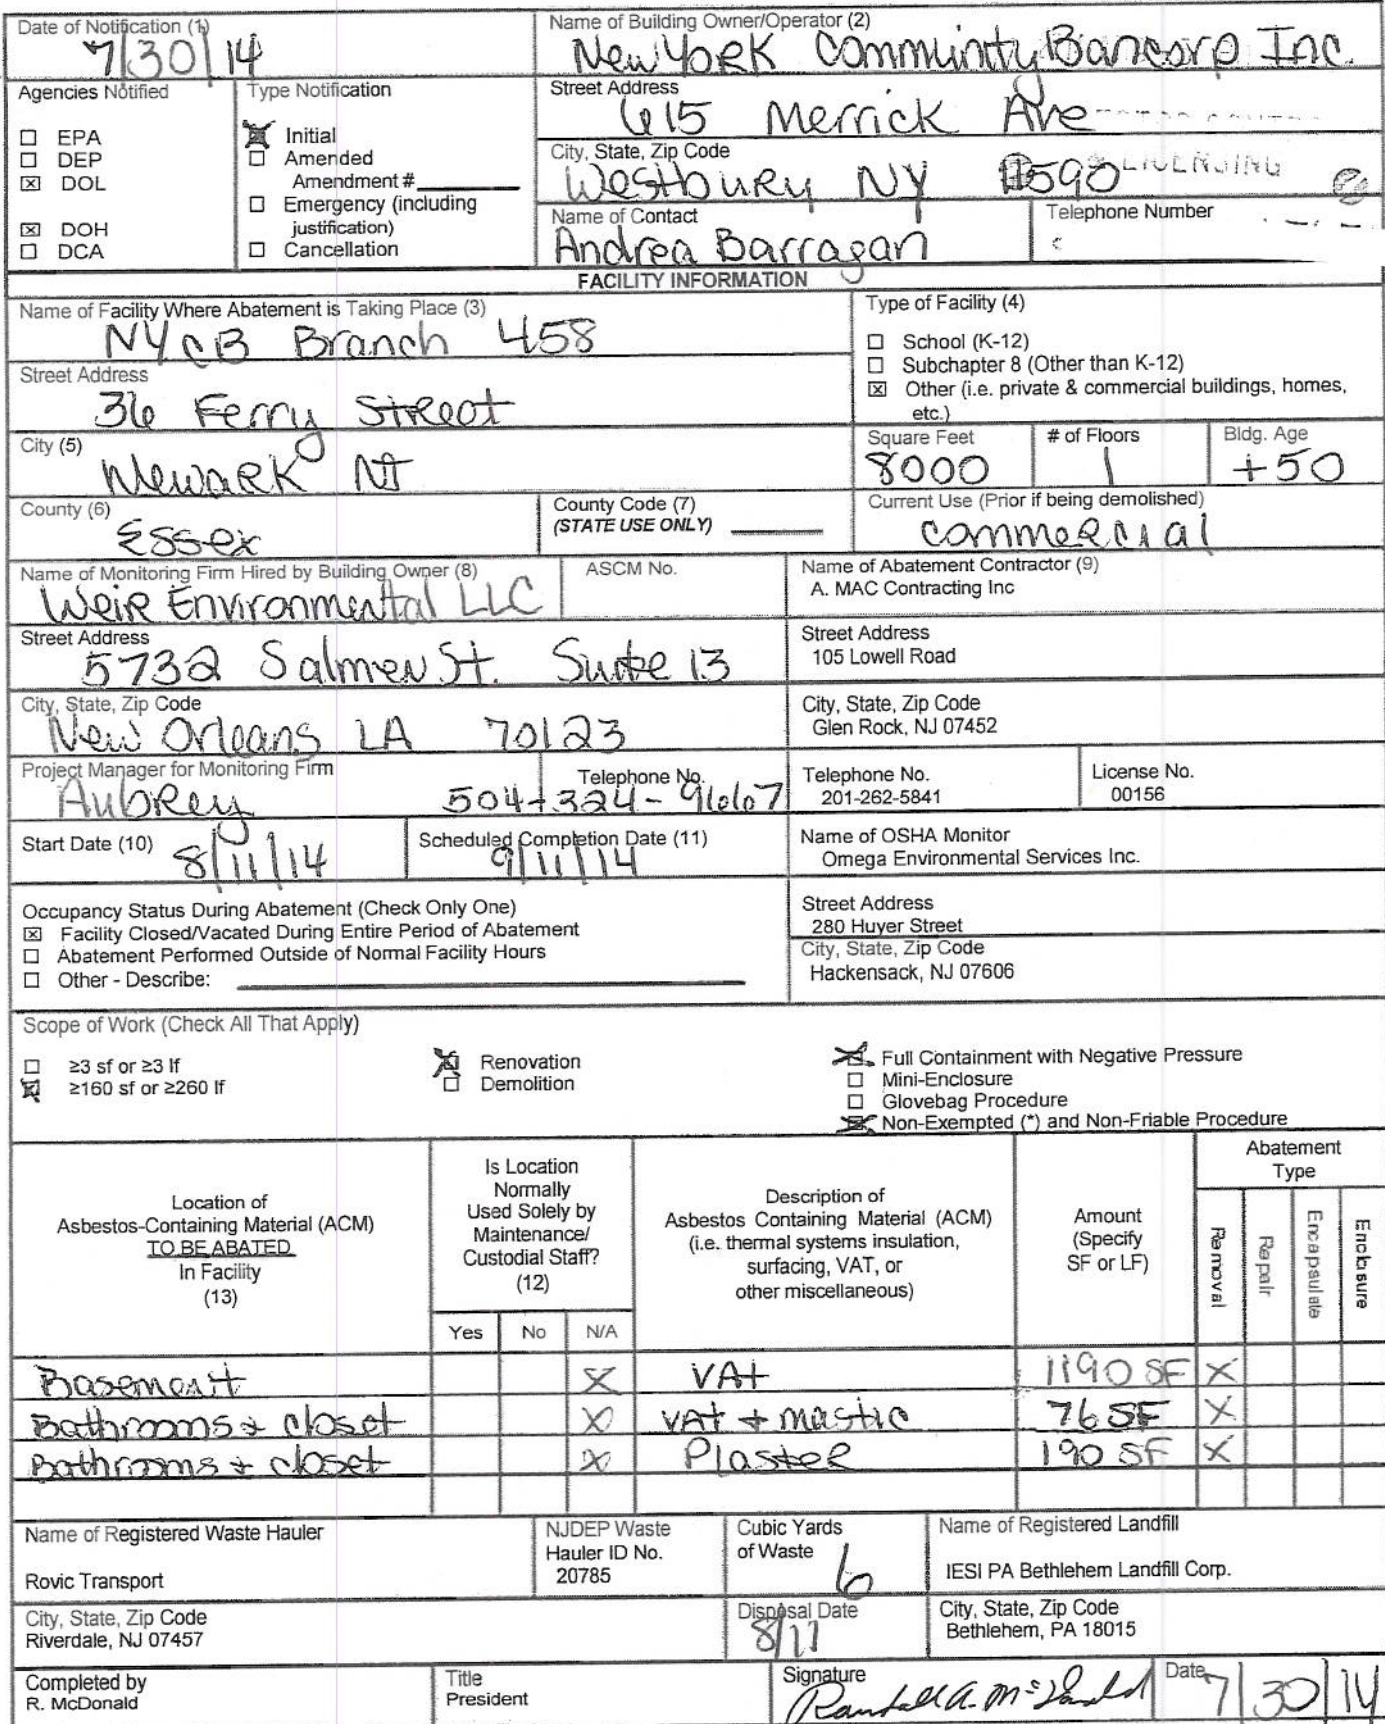 Date of Notification (1)
7/30/14
Name of Building Owner/Operator (2)
New York Comminty Bancorp Inc.
Agencies Notified
☐ EPA
☐ DEP
☒ DOL
☒ DOH
☐ DCA
Type Notification
☒ Initial
☐ Amended
Amendment #
☐ Emergency (including
justification)
☐ Cancellation
Street Address
615 Merrick Ave
City, State, Zip Code
Westbury NY 11590
LICENSING
Name of Contact
Andrea Barragan
Telephone Number
FACILITY INFORMATION
Name of Facility Where Abatement is Taking Place (3)
NYCB Branch 458
Type of Facility (4)
☐ School (K-12)
☐ Subchapter 8 (Other than K-12)
☒ Other (i.e. private & commercial buildings, homes,
etc.)
Street Address
36 Ferry Street
City (5)
Newark NJ
Square Feet
8000
# of Floors
1
Bldg. Age
+50
County (6)
Essex
County Code (7)
(STATE USE ONLY)
Current Use (Prior if being demolished)
commercial
Name of Monitoring Firm Hired by Building Owner (8)
Weir Environmental LLC
ASCM No.
Name of Abatement Contractor (9)
A. MAC Contracting Inc
Street Address
5732 Salmen St. Suite 13
Street Address
105 Lowell Road
City, State, Zip Code
New Orleans LA 70123
City, State, Zip Code
Glen Rock, NJ 07452
Project Manager for Monitoring Firm
Aubrey
Telephone No.
504-324-9667
Telephone No.
201-262-5841
License No.
00156
Start Date (10)
8/11/14
Scheduled Completion Date (11)
9/11/14
Name of OSHA Monitor
Omega Environmental Services Inc.
Occupancy Status During Abatement (Check Only One)
☒ Facility Closed/Vacated During Entire Period of Abatement
☐ Abatement Performed Outside of Normal Facility Hours
☐ Other - Describe:
Street Address
280 Huyer Street
City, State, Zip Code
Hackensack, NJ 07606
Scope of Work (Check All That Apply)
☐ ≥3 sf or ≥3 lf
☒ ≥160 sf or ≥260 lf
☒ Renovation
☐ Demolition
☒ Full Containment with Negative Pressure
☐ Mini-Enclosure
☐ Glovebag Procedure
☒ Non-Exempted (*) and Non-Friable Procedure
Location of
Asbestos-Containing Material (ACM)
TO BE ABATED
In Facility
(13)
Is Location
Normally
Used Solely by
Maintenance/
Custodial Staff?
(12)
Yes No N/A
Description of
Asbestos Containing Material (ACM)
(i.e. thermal systems insulation,
surfacing, VAT, or
other miscellaneous)
Amount
(Specify
SF or LF)
Abatement
Type
Removal
Repair
Encapsulate
Enclosure
Basement X VAt 1190 SF X
Bathrooms + closet X VAt + mastic 76 SF X
Bathrooms + closet X Plaster 190 SF X
Name of Registered Waste Hauler
Rovic Transport
NJDEP Waste
Hauler ID No.
20785
Cubic Yards
of Waste
6
Name of Registered Landfill
IESI PA Bethlehem Landfill Corp.
City, State, Zip Code
Riverdale, NJ 07457
Disposal Date
8/11
City, State, Zip Code
Bethlehem, PA 18015
Completed by
R. McDonald
Title
President
Signature
Randall A. McDonald
Date
7/30/14